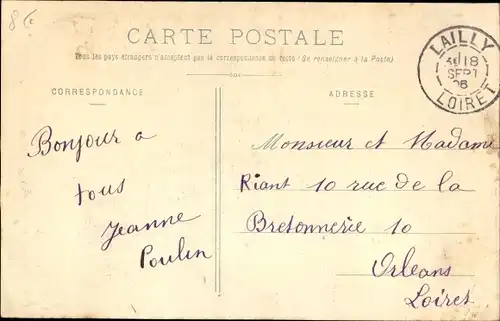 8€
CARTE POSTALE
Tous les pays étrangers n'acceptent pas la correspondance au recto (Se renseigner à la Poste)
CORRESPONDANCE
ADRESSE
LAILLY
18
SEPT
06
LOIRET
Bonjour a
tous
Jeanne
Poulin
Monsieur et Madame
Riant 10 rue de la
Bretonnerie 10
Orleans
Loiret